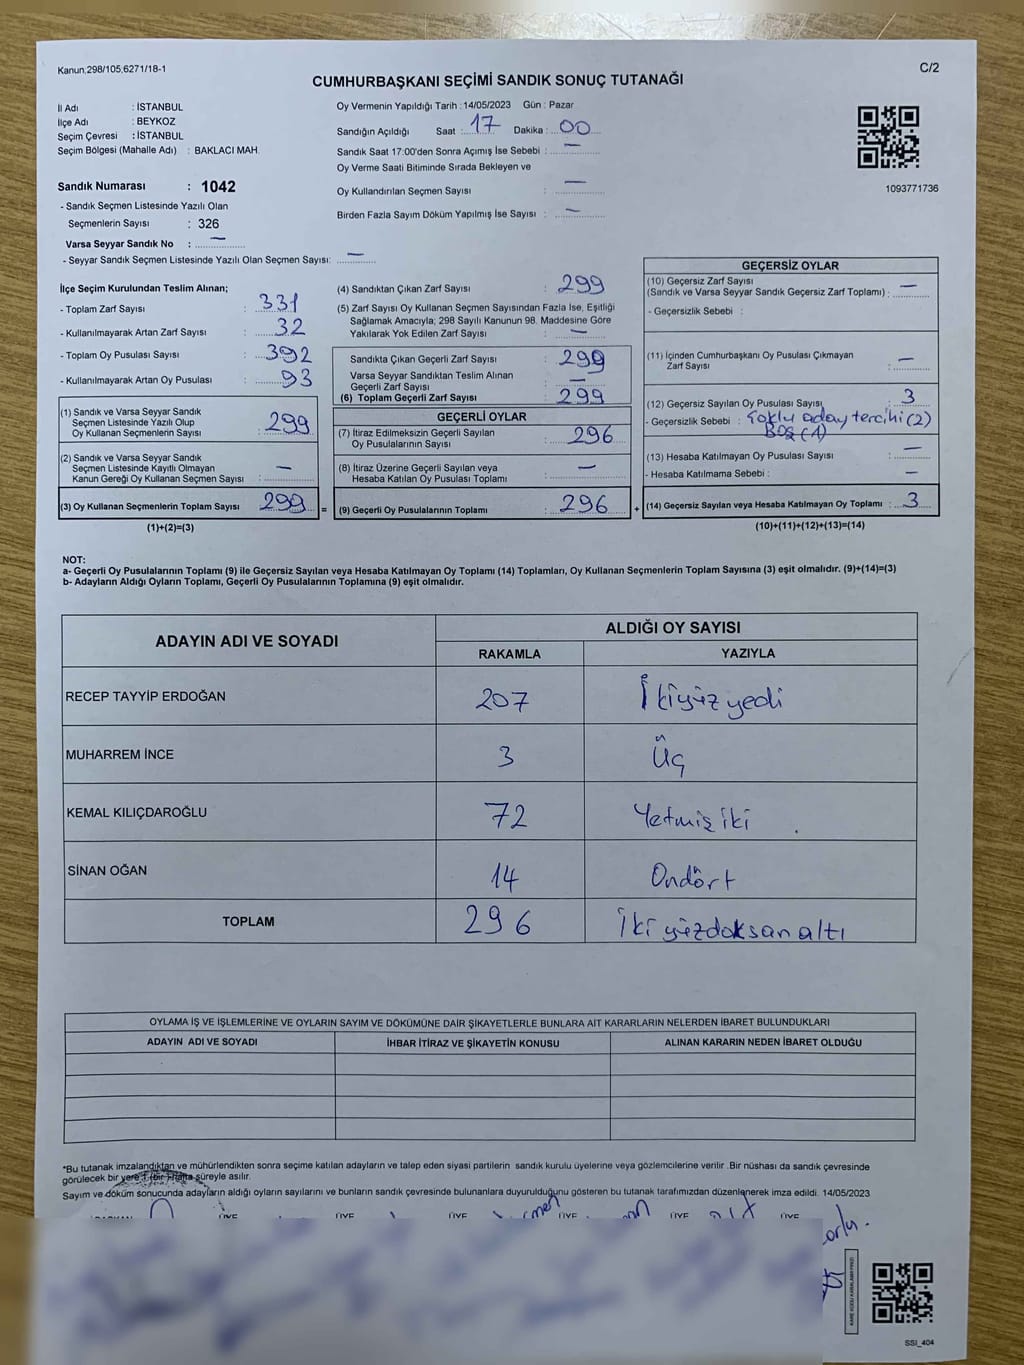 Kanun,298/105,6271/18-1
C/2
CUMHURBAŞKANI SEÇİMİ SANDIK SONUÇ TUTANAĞI
İl Adı : İSTANBUL
İlçe Adı : BEYKOZ
Seçim Çevresi : İSTANBUL
Seçim Bölgesi (Mahalle Adı) : BAKLACI MAH.
Sandık Numarası : 1042
- Sandık Seçmen Listesinde Yazılı Olan
Seçmenlerin Sayısı : 326
Varsa Seyyar Sandık No : —
- Seyyar Sandık Seçmen Listesinde Yazılı Olan Seçmen Sayısı: —
Oy Vermenin Yapıldığı Tarih : 14/05/2023 Gün : Pazar
Sandığın Açıldığı Saat : 17 Dakika : 00
Sandık Saat 17:00'den Sonra Açımış İse Sebebi : —
Oy Verme Saati Bitiminde Sırada Bekleyen ve
Oy Kullandırılan Seçmen Sayısı : —
Birden Fazla Sayım Döküm Yapılmış İse Sayısı : —
1093771736
İlçe Seçim Kurulundan Teslim Alınan;
- Toplam Zarf Sayısı : 331
- Kullanılmayarak Artan Zarf Sayısı : 32
- Toplam Oy Pusulası Sayısı : 392
- Kullanılmayarak Artan Oy Pusulası : 93
(1) Sandık ve Varsa Seyyar Sandık
Seçmen Listesinde Yazılı Olup
Oy Kullanan Seçmenlerin Sayısı : 299
(2) Sandık ve Varsa Seyyar Sandık
Seçmen Listesinde Kayıtlı Olmayan
Kanun Gereği Oy Kullanan Seçmen Sayısı : —
(3) Oy Kullanan Seçmenlerin Toplam Sayısı : 299 =
(1)+(2)=(3)
(4) Sandıktan Çıkan Zarf Sayısı : 299
(5) Zarf Sayısı Oy Kullanan Seçmen Sayısından Fazla İse, Eşitliği
Sağlamak Amacıyla; 298 Sayılı Kanunun 98. Maddesine Göre
Yakılarak Yok Edilen Zarf Sayısı : —
Sandıkta Çıkan Geçerli Zarf Sayısı : 299
Varsa Seyyar Sandıktan Teslim Alınan
Geçerli Zarf Sayısı : —
(6) Toplam Geçerli Zarf Sayısı : 299
GEÇERLİ OYLAR
(7) İtiraz Edilmeksizin Geçerli Sayılan
Oy Pusulalarının Sayısı : 296
(8) İtiraz Üzerine Geçerli Sayılan veya
Hesaba Katılan Oy Pusulası Toplamı : —
(9) Geçerli Oy Pusulalarının Toplamı : 296 +
GEÇERSİZ OYLAR
(10) Geçersiz Zarf Sayısı
(Sandık ve Varsa Seyyar Sandık Geçersiz Zarf Toplamı) : —
- Geçersizlik Sebebi :
(11) İçinden Cumhurbaşkanı Oy Pusulası Çıkmayan
Zarf Sayısı : —
(12) Geçersiz Sayılan Oy Pusulası Sayısı : 3
- Geçersizlik Sebebi : Çoklu aday tercihi (2)
Boş (1)
(13) Hesaba Katılmayan Oy Pusulası Sayısı : —
- Hesaba Katılmama Sebebi : —
(14) Geçersiz Sayılan veya Hesaba Katılmayan Oy Toplamı : 3
(10)+(11)+(12)+(13)=(14)
NOT:
a- Geçerli Oy Pusulalarının Toplamı (9) ile Geçersiz Sayılan veya Hesaba Katılmayan Oy Toplamı (14) Toplamları, Oy Kullanan Seçmenlerin Toplam Sayısına (3) eşit olmalıdır. (9)+(14)=(3)
b- Adayların Aldığı Oyların Toplamı, Geçerli Oy Pusulalarının Toplamına (9) eşit olmalıdır.
ADAYIN ADI VE SOYADI
ALDIĞI OY SAYISI
RAKAMLA YAZIYLA
RECEP TAYYİP ERDOĞAN 207 İkiyüz yedi
MUHARREM İNCE 3 Üç
KEMAL KILIÇDAROĞLU 72 Yetmiş iki
SİNAN OĞAN 14 Ondört
TOPLAM 296 İki yüzdoksan altı
OYLAMA İŞ VE İŞLEMLERİNE VE OYLARIN SAYIM VE DÖKÜMÜNE DAİR ŞİKAYETLERLE BUNLARA AİT KARARLARIN NELERDEN İBARET BULUNDUKLARI
ADAYIN ADI VE SOYADI İHBAR İTİRAZ VE ŞİKAYETİN KONUSU ALINAN KARARIN NEDEN İBARET OLDUĞU
*Bu tutanak imzalandıktan ve mühürlendikten sonra seçime katılan adayların ve talep eden siyasi partilerin sandık kurulu üyelerine veya gözlemcilerine verilir .Bir nüshası da sandık çevresinde
görülecek bir yere 1 (bir) hafta süreyle asılır.
Sayım ve döküm sonucunda adayların aldığı oyların sayılarını ve bunların sandık çevresinde bulunanlara duyurulduğunu gösteren bu tutanak tarafımızdan düzenlenerek imza edildi. 14/05/2023
ÜYE ÜYE ÜYE ÜYE ÜYE ÜYE
SSİ_404